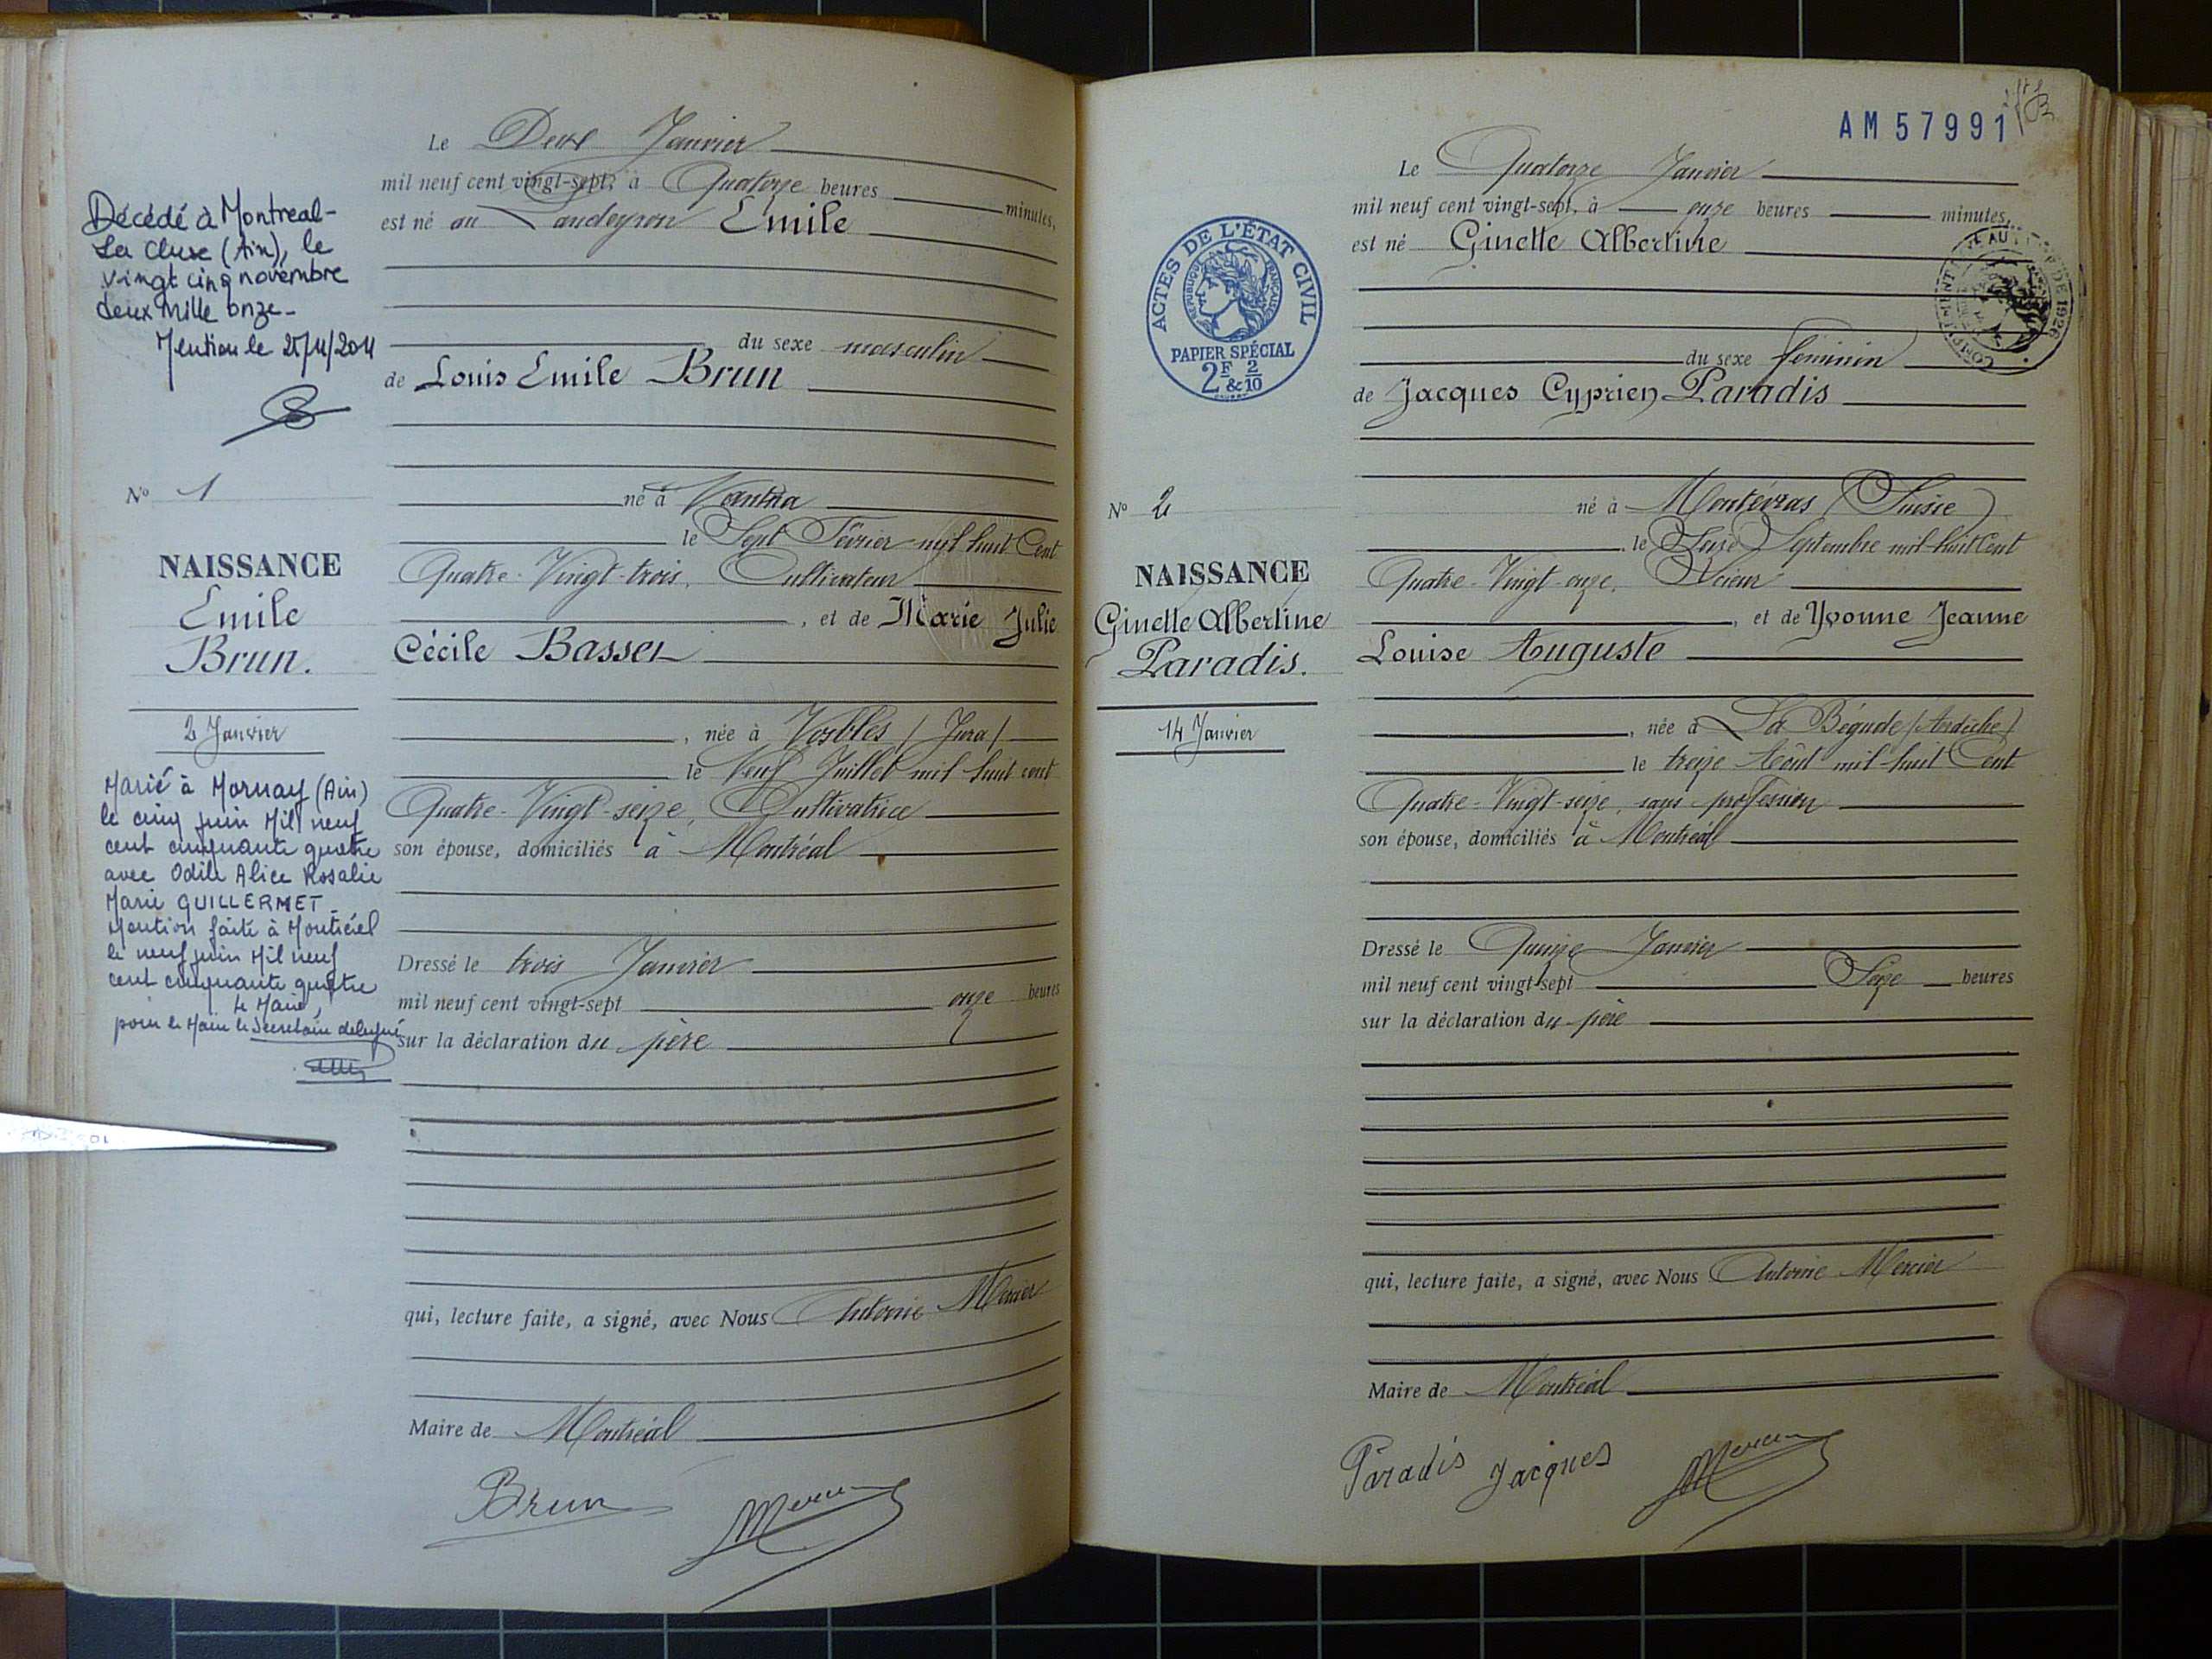 Décédé à Montreal-
La Cluse (Ain), le
vingt cinq novembre
deux mille onze-
Mention le
Nº 1
NAISSANCE
Emile
Brun.
2 Janvier
Marié à Mornay (Ain)
le cinq juin Mil neuf
cent cinquante quatre
avec Odile Alice Rosalie
Marie GUILLERMET
Mention faite à Montréal
le neuf juin Mil neuf
cent cinquante quatre
Le Maire,
pour le Maire le Secrétaire délégué
Le Deux Janvier
mil neuf cent vingt-sept, à Quatorze heures minutes,
est né au Landeyron Emile
du sexe masculin
de Louis Emile Brun
né à
le Sept Février mil huit Cent
Quatre-Vingt-trois, Cultivateur
, et de Marie Julie
Cécile Basset
, née à Vosbles (Jura)
le Neuf Juillet mil huit cent
Quatre-Vingt-seize, Cultivatrice
son épouse, domiciliés à Montréal
Dressé le trois Janvier
mil neuf cent vingt-sept onze heures
sur la déclaration du père
qui, lecture faite, a signé, avec Nous Antoine Mercier
Maire de Montréal
Brun Mercier
AM 57991
ACTES DE L'ÉTAT CIVIL
RÉPUBLIQUE FRANÇAISE
PAPIER SPÉCIAL
2F & 2/10
DE 1926
Nº 2
NAISSANCE
Ginette Albertine
Paradis.
14 Janvier
Le Quatorze Janvier
mil neuf cent vingt-sept, à onze heures minutes,
est né Ginette Albertine
du sexe féminin
de Jacques Cyprien Paradis
né à Montévraz (Suisse)
le Seize Septembre mil-huit Cent
Quatre-Vingt-onze, Scieur
, et de Yvonne Jeanne
Louise Auguste
, née à La Bégude (Ardèche)
le treize Août mil-huit Cent
Quatre-Vingt-seize, sans profession
son épouse, domiciliés à Montréal
Dressé le Quinze Janvier
mil neuf cent vingt-sept Seize heures
sur la déclaration du père
qui, lecture faite, a signé, avec Nous Antoine Mercier
Maire de Montréal
Paradis Jacques Mercier